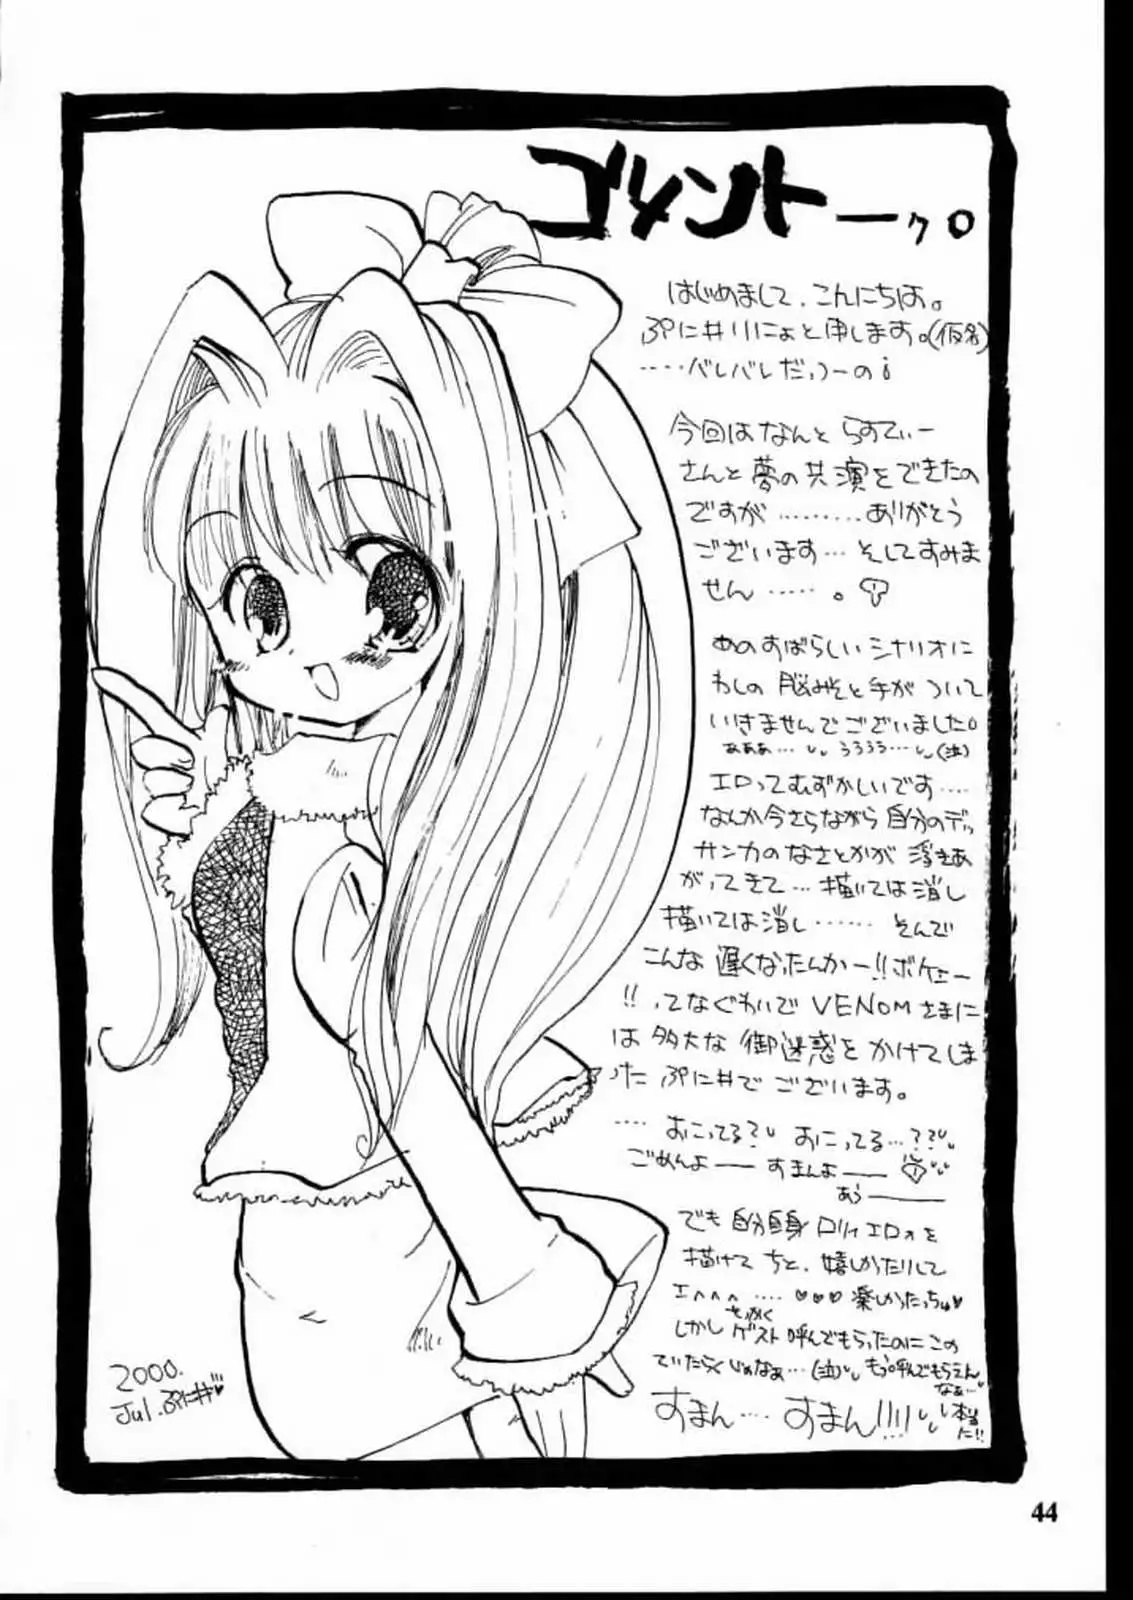 ゴメントーク。
はじめまして、こんにちは。
ぷに井りにょと申します。(仮名)
‥‥バレバレだっつーの¡
今回はなんと らすてぃー
さんと夢の共演をできたの
ですが ‥‥‥‥ ありがとう
ございます… そしてすみま
せん ‥‥‥。
あのすばらしいシナリオに
わしの脳みそと手が ついて
いきませんでございました。
あぁぁ… うううう… (泣)
エロってむずかしいです‥‥
なんか今さらながら自分のデッ
サン力のなさとかが 浮きあ
がってきて… 描いては消し
描いては消し‥‥‥ そんで
こんな 遅くなったんかー!!ボケェー
!! ってなぐわいで VENOMさまに
は 多大な 御迷惑を かけてしま
った ぷに井で ございます。
‥‥ おこってる? おこってる…??
ごめんよ── すまんよ──
あう───
でも 自分自身 ロリィエロを
描けて ちと、嬉しかたりして
エヘヘヘ ‥‥ ♥♥♥ 楽しかったっちゅ♥
せっかく
しかし ゲスト 呼んでもらったのに この
ていたらくじゃなぁ…(泣) もう呼んでもらえん
なぁ…
すまん‥‥ すまん!!!! 本当
に!!
2000.
Jul. ぷに井♥
44